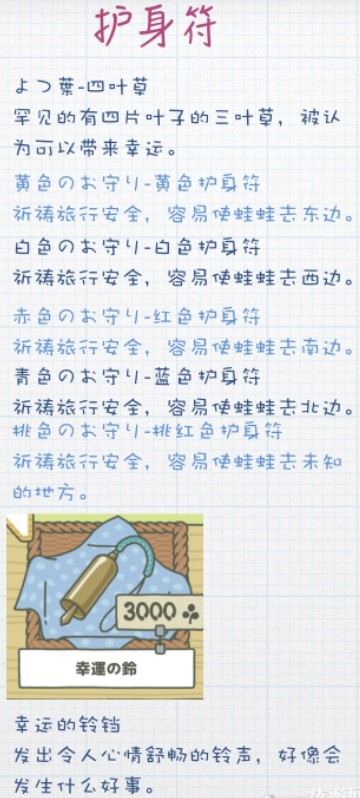 护身符
よつ葉-四叶草
罕见的有四片叶子的三叶草，被认
为可以带来幸运。
黄色のお守り-黄色护身符
祈祷旅行安全，容易使蛙蛙去东边。
白色のお守り-白色护身符
祈祷旅行安全，容易使蛙蛙去西边。
赤色のお守り-红色护身符
祈祷旅行安全，容易使蛙蛙去南边。
青色のお守り-蓝色护身符
祈祷旅行安全，容易使蛙蛙去北边。
桃色のお守り-桃红色护身符
祈祷旅行安全，容易使蛙蛙去未知
的地方。
3000
幸運の鈴
幸运的铃铛
发出令人心情舒畅的铃声，好像会
发生什么好事。